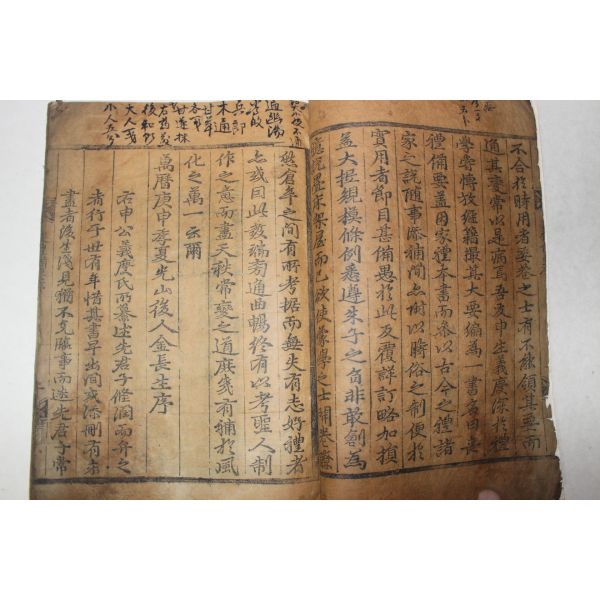 不合於時用者要卷之士有不能領其要而
通其變常以是病焉吾友申生義慶深於禮
學嘗博放經籍撮其大要編為一書名曰喪
禮備要蓋因家禮本書而參以古今之禮諸
家之說隨事添補間亦附以時俗之制便於
實用者節目甚備愚於此及覆詳訂略加損
益大抵規模條例悉遵朱子之旨非敢創為
疊床架屋而已欲使蒙學之士開卷瞭
然倉卒之間有所考据而無失有志好禮者
亦或目此發端旁通曲暢終有以考聖人制
作之意而盡天秩常變之道庶幾有補於風
化之萬一云爾
萬曆庚申季夏光山後人金長生序
右申公義慶氏所纂述先君子修潤而弁之
者行于世有年惜其書早出間或添刪有未
盡者後生淺見猶不免臨事而迷先君子常
兵部
木通
甘草
各一戔
大人五
小人五分